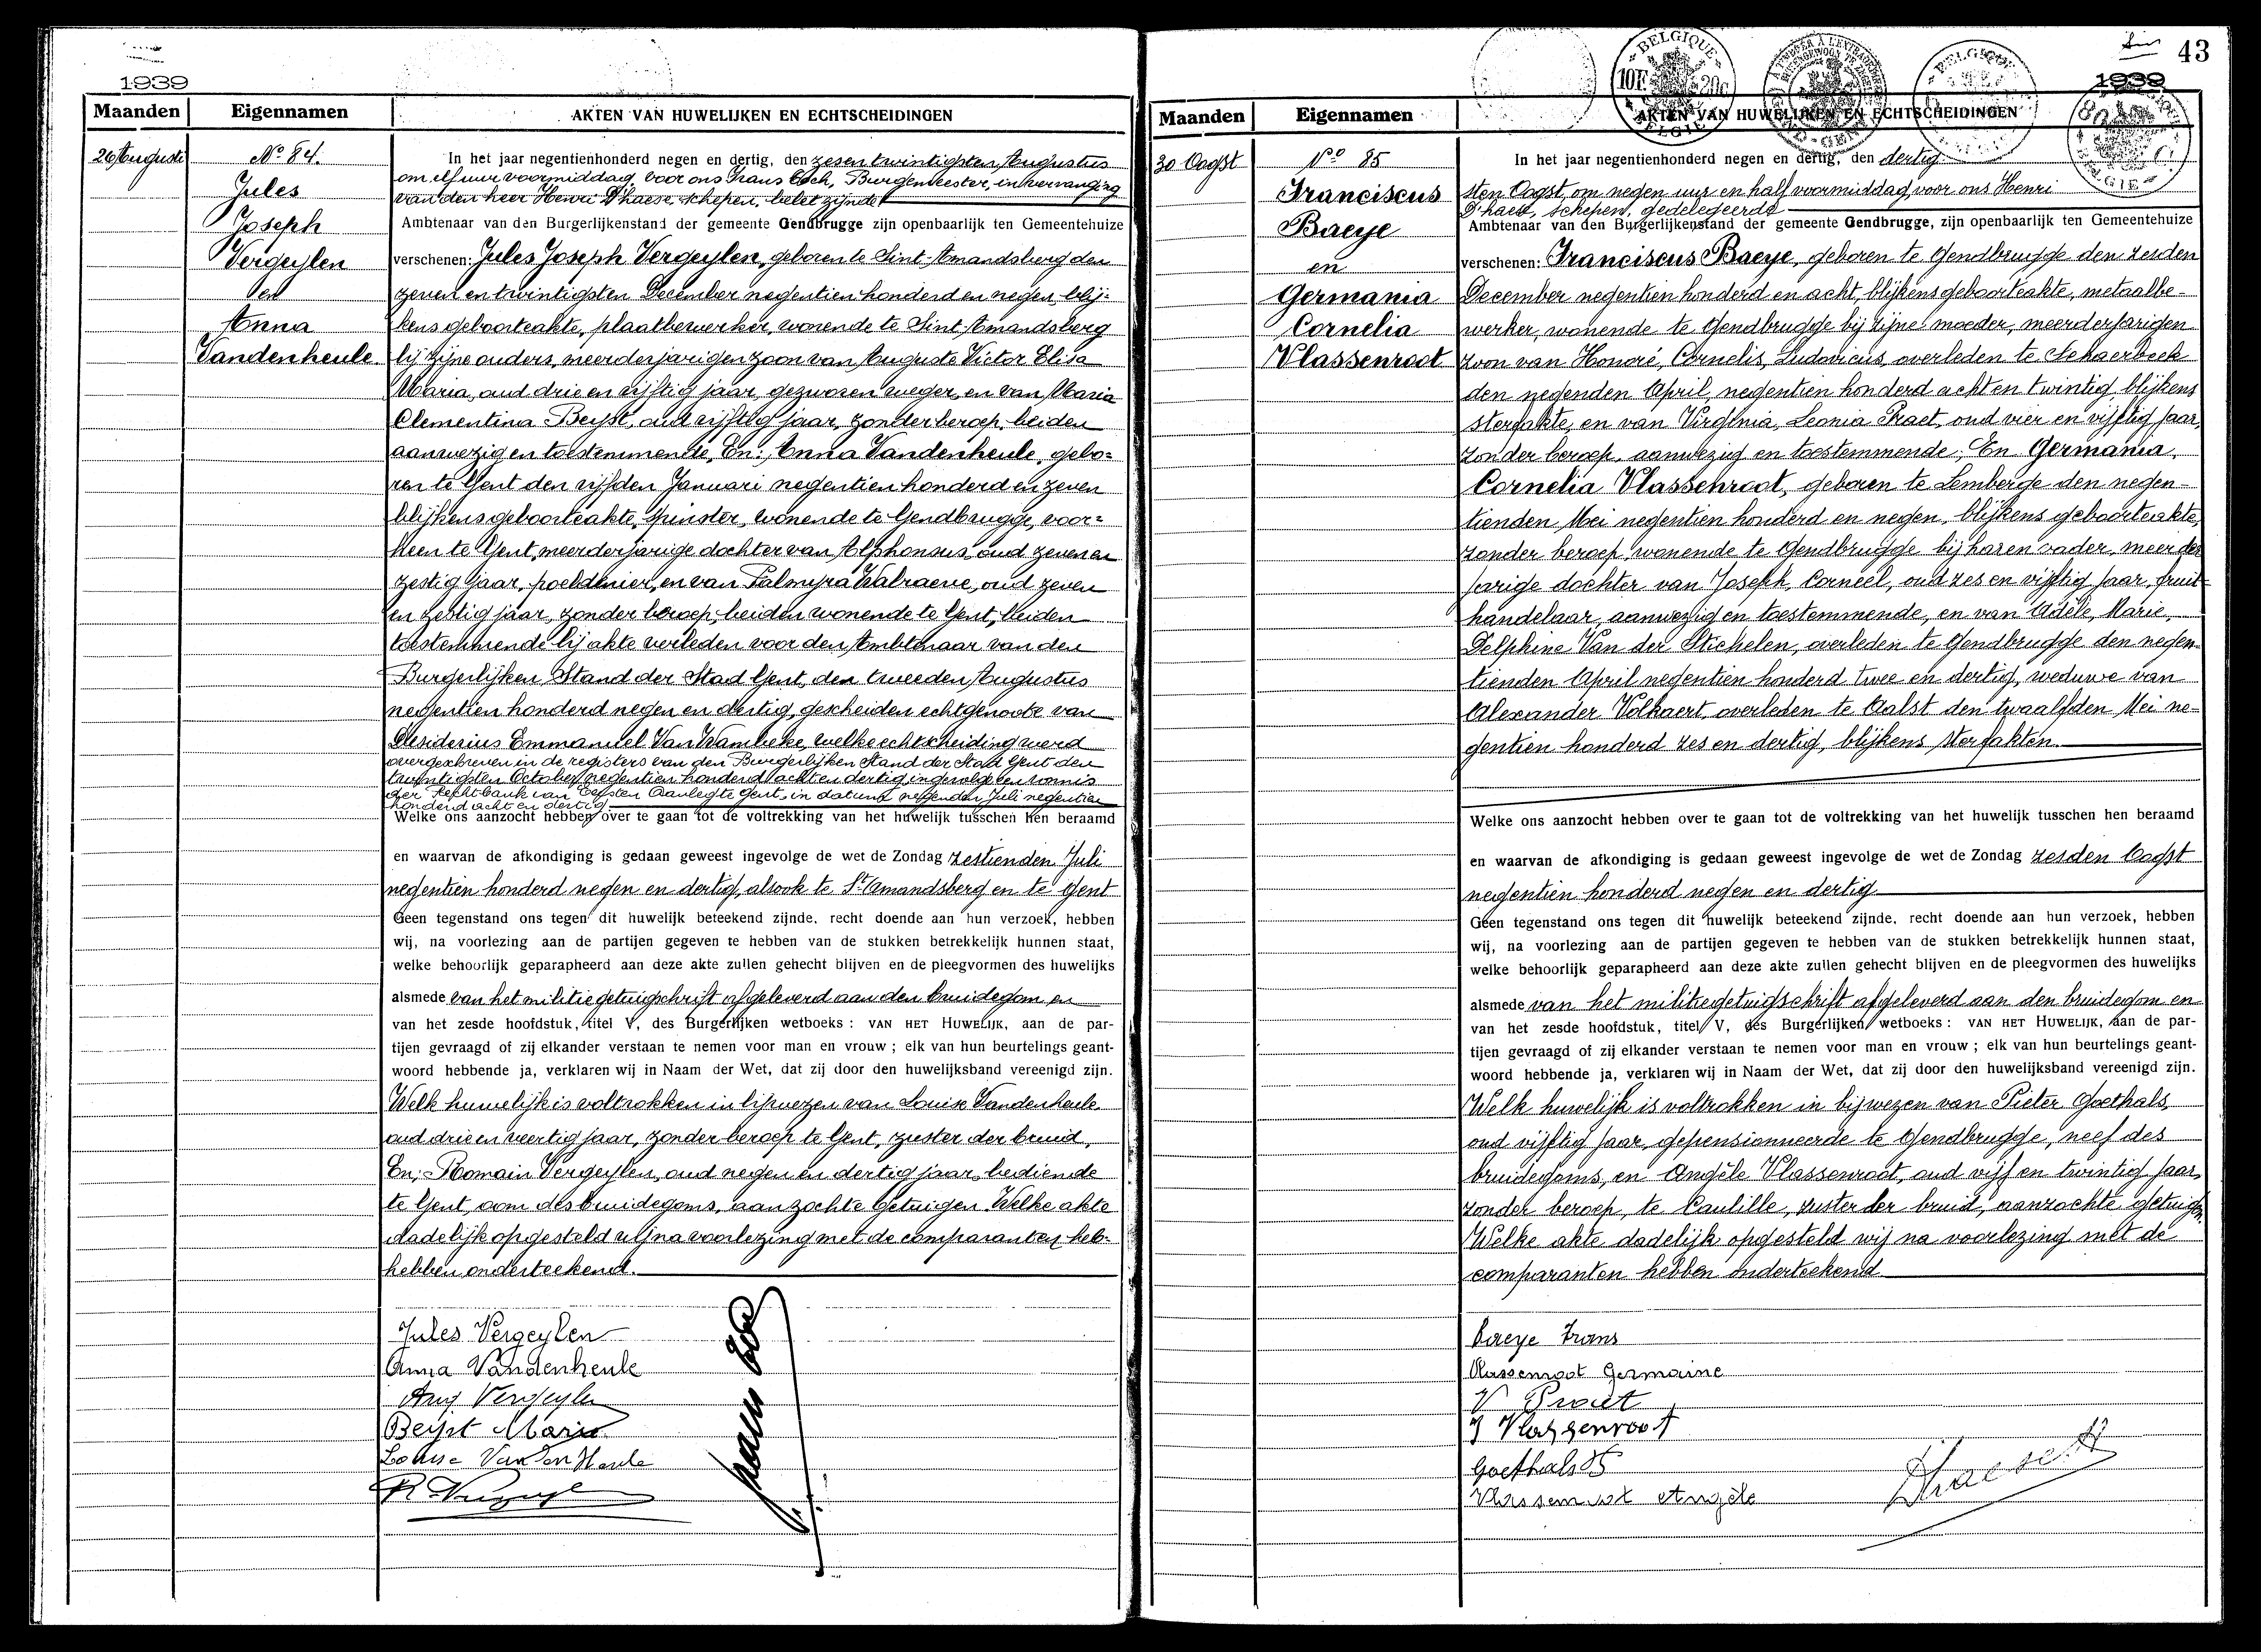 1939
Maanden Eigennamen AKTEN VAN HUWELIJKEN EN ECHTSCHEIDINGEN
26 Augusti
No 84.
Jules
Joseph
Vergeylen
en
Anna
Vandenheule
In het jaar negentienhonderd negen en dertig, den zesentwintigsten Augustus
om elf uur voormiddag voor ons Frans Coch, Burgemeester, in vervanging
van den heer Henri D'haese, schepen, belet zijnde
Ambtenaar van den Burgerlijkenstand der gemeente Gendbrugge zijn openbaarlijk ten Gemeentehuize
verschenen: Jules Joseph Vergeylen, geboren te Sint-Amandsberg den
zeven en twintigsten December negentien honderd en negen, blij-
kens geboorteakte, plaatbewerker, wonende te Sint Amandsberg
bij zijne ouders, meerderjarigen zoon van Auguste Victor Elisa
Maria, oud drie en vijftig jaar, gezworen weger, en van Maria
Clementina Beyst, oud vijftig jaar, zonder beroep, beiden
aanwezig en toestemmende, En: Anna Vandenheule, gebo-
ren te Gent den vijfden Januari negentien honderd en zeven
blijkens geboorteakte, spinster, wonende te Gendbrugge, voor-
heen te Gent, meerderjarige dochter van Alphonsus, oud zeven en
zestig jaar, poeldenier, en van Palmyra Walraeve, oud zeven
en zestig jaar, zonder beroep, beiden wonende te Gent, beiden
toestemmende bij akte verleden voor den Ambtenaar van den
Burgerlijken Stand der Stad Gent, den tweeden Augustus
negentien honderd negen en dertig, gescheiden echtgenoote van
Desiderius Emmanuel Van Wambeke, welke echtscheiding werd
overgeschreven in de registers van den Burgerlijken Stand der Stad Gent den
twintigsten October negentien honderd acht en dertig ingevolge een vonnis
der Rechtbank van Eersten Aanleg te Gent, in datum negenden Juli negentien
honderd acht en dertig
Welke ons aanzocht hebben over te gaan tot de voltrekking van het huwelijk tusschen hen beraamd
en waarvan de afkondiging is gedaan geweest ingevolge de wet de Zondag zestienden Juli
negentien honderd negen en dertig, alsook te St Amandsberg en te Gent
Geen tegenstand ons tegen dit huwelijk beteekend zijnde, recht doende aan hun verzoek, hebben
wij, na voorlezing aan de partijen gegeven te hebben van de stukken betrekkelijk hunnen staat,
welke behoorlijk geparapheerd aan deze akte zullen gehecht blijven en de pleegvormen des huwelijks
alsmede van het militiegetuigschrift afgeleverd aan den bruidegom en
van het zesde hoofdstuk, titel V, des Burgerlijken wetboeks : VAN HET HUWELIJK, aan de par-
tijen gevraagd of zij elkander verstaan te nemen voor man en vrouw ; elk van hun beurtelings geant-
woord hebbende ja, verklaren wij in Naam der Wet, dat zij door den huwelijksband vereenigd zijn.
Welk huwelijk is voltrokken in bijwezen van Louise Vandenheule
oud drie en veertig jaar, zonder beroep te Gent, zuster der bruid,
En: Romain Vergeylen, oud negen en dertig jaar, bediende
te Gent, oom des bruidegoms, aanzochte getuigen. Welke akte
dadelijk opgesteld wij na voorlezing met de comparanten heb-
hebben onderteekend.
Jules Vergeylen
Anna Vandenheule
Aug Vergeylen
Beyst Maria
Louise Vandenheule
43
1939
BELGIQUE
10F. 20c
BELGIE
Maanden Eigennamen AKTEN VAN HUWELIJKEN EN ECHTSCHEIDINGEN
30 Oogst
No 85
Franciscus
Baeye
en
Germania
Cornelia
Vlassenroot
In het jaar negentienhonderd negen en dertig, den dertig-
sten Oogst, om negen uur en half voormiddag, voor ons Henri
D'haese, schepen, gedelegeerde
Ambtenaar van den Burgerlijkenstand der gemeente Gendbrugge, zijn openbaarlijk ten Gemeentehuize
verschenen: Franciscus Baeye, geboren te Gendbrugge den zesden
December negentien honderd en acht, blijkens geboorteakte, metaalbe-
werker, wonende te Gendbrugge bij zijne moeder, meerderjarigen
zoon van Honoré, Cornelis, Ludovicus, overleden te Schaerbeek
den negenden April, negentien honderd acht en twintig, blijkens
sterfakte, en van Virginia, Leonia Praet, oud vier en vijftig jaar,
zonder beroep, aanwezig en toestemmende; En Germania,
Cornelia Vlassenroot, geboren te Lemberge den negen-
tienden Mei negentien honderd en negen, blijkens geboorteakte,
zonder beroep, wonende te Gendbrugge bij haren vader, meerder
jarige dochter van Joseph, Corneel, oud zes en vijftig jaar, fruit-
handelaar, aanwezig en toestemmende, en van Adèle, Marie,
Delphine Van der Stichelen, overleden te Gendbrugge den negen-
tienden April negentien honderd twee en dertig, weduwe van
Alexander Volkaert, overleden te Aalst den twaalfden Mei ne-
gentien honderd zes en dertig, blijkens sterfakten.
Welke ons aanzocht hebben over te gaan tot de voltrekking van het huwelijk tusschen hen beraamd
en waarvan de afkondiging is gedaan geweest ingevolge de wet de Zondag zesden Oogst
negentien honderd negen en dertig
Geen tegenstand ons tegen dit huwelijk beteekend zijnde, recht doende aan hun verzoek, hebben
wij, na voorlezing aan de partijen gegeven te hebben van de stukken betrekkelijk hunnen staat,
welke behoorlijk geparapheerd aan deze akte zullen gehecht blijven en de pleegvormen des huwelijks
alsmede van het militiegetuigschrift afgeleverd aan den bruidegom en
van het zesde hoofdstuk, titel V, des Burgerlijken wetboeks : VAN HET HUWELIJK, aan de par-
tijen gevraagd of zij elkander verstaan te nemen voor man en vrouw ; elk van hun beurtelings geant-
woord hebbende ja, verklaren wij in Naam der Wet, dat zij door den huwelijksband vereenigd zijn.
Welk huwelijk is voltrokken in bijwezen van Pieter Goethals,
oud vijftig jaar, gepensionneerde te Gendbrugge, neef des
bruidegoms, en Angèle Vlassenroot, oud vijf en twintig jaar,
zonder beroep, te Caulille, zuster der bruid, aanzochte getuigen.
Welke akte dadelijk opgesteld wij na voorlezing met de
comparanten hebben onderteekend
Baeye Frans
Vlassenroot Germaine
V Praet
J Vlassenroot
Goethals P
Vlassenroot Angèle
D'haese H